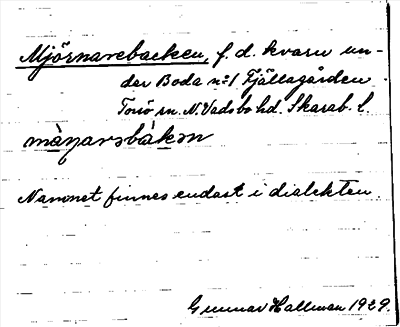 Mjörnarebacken, f. d. kvarn un-
der Boda nº 1 Fjällagården
sn. N. Vadsbo hd. Skarab. l.
Namnet finnes endast i dialekten.
Gunnar Hallman 1929.